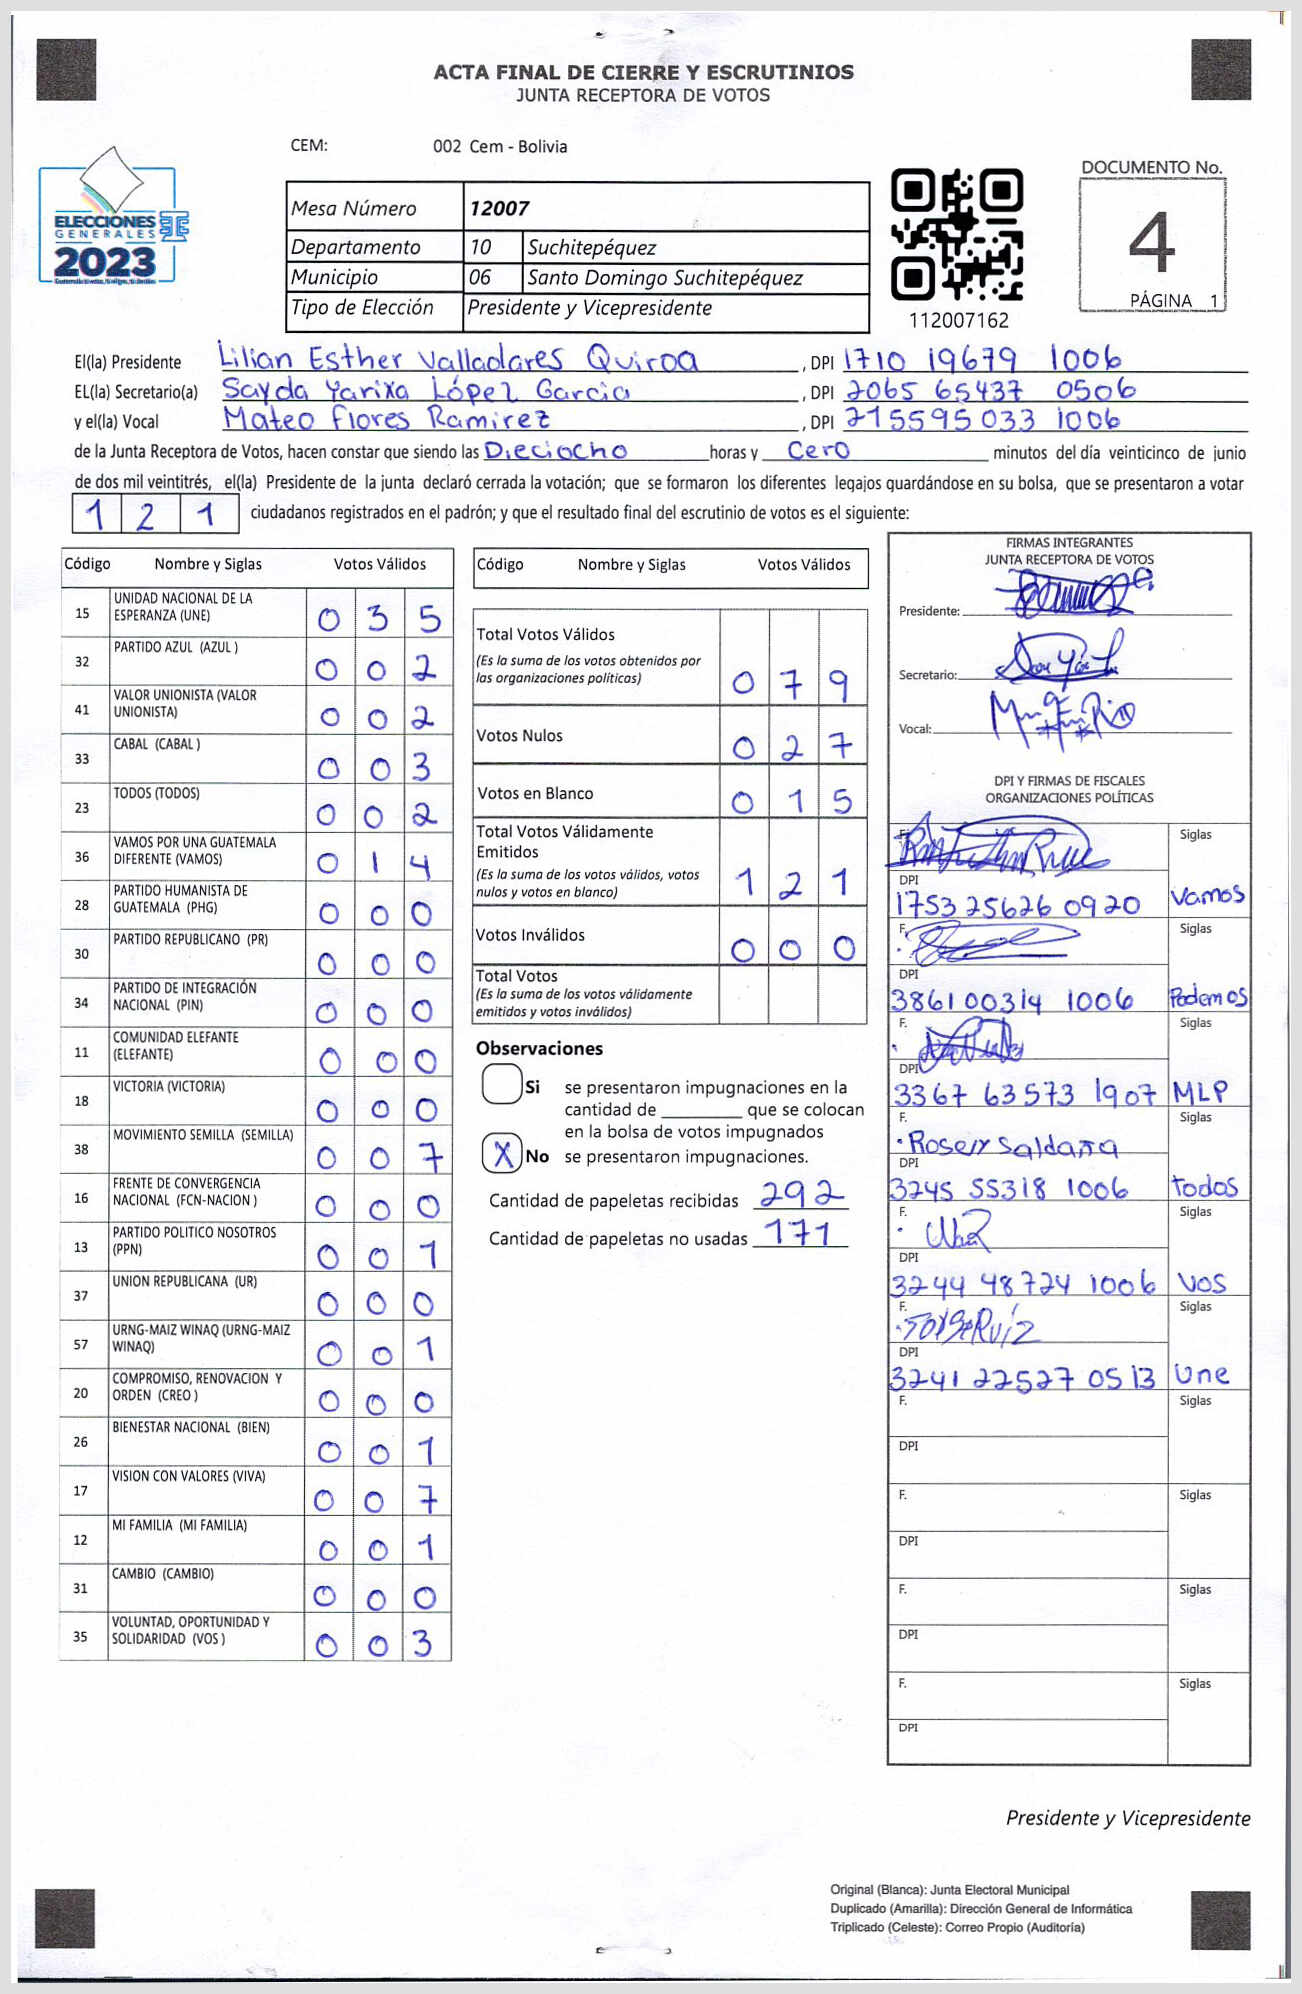 ACTA FINAL DE CIERRE Y ESCRUTINIOS
JUNTA RECEPTORA DE VOTOS
CEM: 002 Cem - Bolivia
ELECCIONES
GENERALES
2023
Mesa Número 12007
Departamento 10 Suchitepéquez
Municipio 06 Santo Domingo Suchitepéquez
Tipo de Elección Presidente y Vicepresidente
112007162
DOCUMENTO No.
4
PÁGINA 1
El(la) Presidente Lilian Esther Valladares Quiroa, DPI 1710 19679 1006
EL(la) Secretario(a) Sayda Yarixa López Garcia, DPI 2065 65437 0506
y el(la) Vocal Mateo Flores Ramirez, DPI 215595033 1006
de la Junta Receptora de Votos, hacen constar que siendo las Dieciocho horas y Cero minutos del día veinticinco de junio
de dos mil veintitrés, el(la) Presidente de la junta declaró cerrada la votación; que se formaron los diferentes legajos guardándose en su bolsa, que se presentaron a votar
1 2 1 ciudadanos registrados en el padrón; y que el resultado final del escrutinio de votos es el siguiente:
Código Nombre y Siglas Votos Válidos
15 UNIDAD NACIONAL DE LA
ESPERANZA (UNE) 0 3 5
32 PARTIDO AZUL (AZUL ) 0 0 2
41 VALOR UNIONISTA (VALOR
UNIONISTA) 0 0 2
33 CABAL (CABAL ) 0 0 3
23 TODOS (TODOS) 0 0 2
36 VAMOS POR UNA GUATEMALA
DIFERENTE (VAMOS) 0 1 4
28 PARTIDO HUMANISTA DE
GUATEMALA (PHG) 0 0 0
30 PARTIDO REPUBLICANO (PR) 0 0 0
34 PARTIDO DE INTEGRACIÓN
NACIONAL (PIN) 0 0 0
11 COMUNIDAD ELEFANTE
(ELEFANTE) 0 0 0
18 VICTORIA (VICTORIA) 0 0 0
38 MOVIMIENTO SEMILLA (SEMILLA) 0 0 7
16 FRENTE DE CONVERGENCIA
NACIONAL (FCN-NACION ) 0 0 0
13 PARTIDO POLITICO NOSOTROS
(PPN) 0 0 1
37 UNION REPUBLICANA (UR) 0 0 0
57 URNG-MAIZ WINAQ (URNG-MAIZ
WINAQ) 0 0 1
20 COMPROMISO, RENOVACION Y
ORDEN (CREO ) 0 0 0
26 BIENESTAR NACIONAL (BIEN) 0 0 1
17 VISION CON VALORES (VIVA) 0 0 7
12 MI FAMILIA (MI FAMILIA) 0 0 1
31 CAMBIO (CAMBIO) 0 0 0
35 VOLUNTAD, OPORTUNIDAD Y
SOLIDARIDAD (VOS ) 0 0 3
Código Nombre y Siglas Votos Válidos
Total Votos Válidos
(Es la suma de los votos obtenidos por
las organizaciones políticas) 0 7 9
Votos Nulos 0 2 7
Votos en Blanco 0 1 5
Total Votos Válidamente
Emitidos
(Es la suma de los votos válidos, votos
nulos y votos en blanco) 1 2 1
Votos Inválidos 0 0 0
Total Votos
(Es la suma de los votos válidamente
emitidos y votos inválidos)
Observaciones
Si se presentaron impugnaciones en la
cantidad de ________ que se colocan
en la bolsa de votos impugnados
X No se presentaron impugnaciones.
Cantidad de papeletas recibidas 292
Cantidad de papeletas no usadas 171
FIRMAS INTEGRANTES
JUNTA RECEPTORA DE VOTOS
Presidente:
Secretario:
Vocal:
DPI Y FIRMAS DE FISCALES
ORGANIZACIONES POLÍTICAS
F. Siglas
DPI
1753 25626 0920 Vamos
F. Siglas
DPI
3861 00314 1006 Podemos
F. Siglas
DPI
3367 63573 1907 MLP
F. Siglas
Rosery Saldaña
DPI
3245 55318 1006 todos
F. Siglas
DPI
3244 48724 1006 VOS
F. Siglas
DPI
3241 22527 0513 Une
F. Siglas
DPI
F. Siglas
DPI
F. Siglas
DPI
F. Siglas
DPI
Presidente y Vicepresidente
Original (Blanca): Junta Electoral Municipal
Duplicado (Amarilla): Dirección General de Informática
Triplicado (Celeste): Correo Propio (Auditoría)